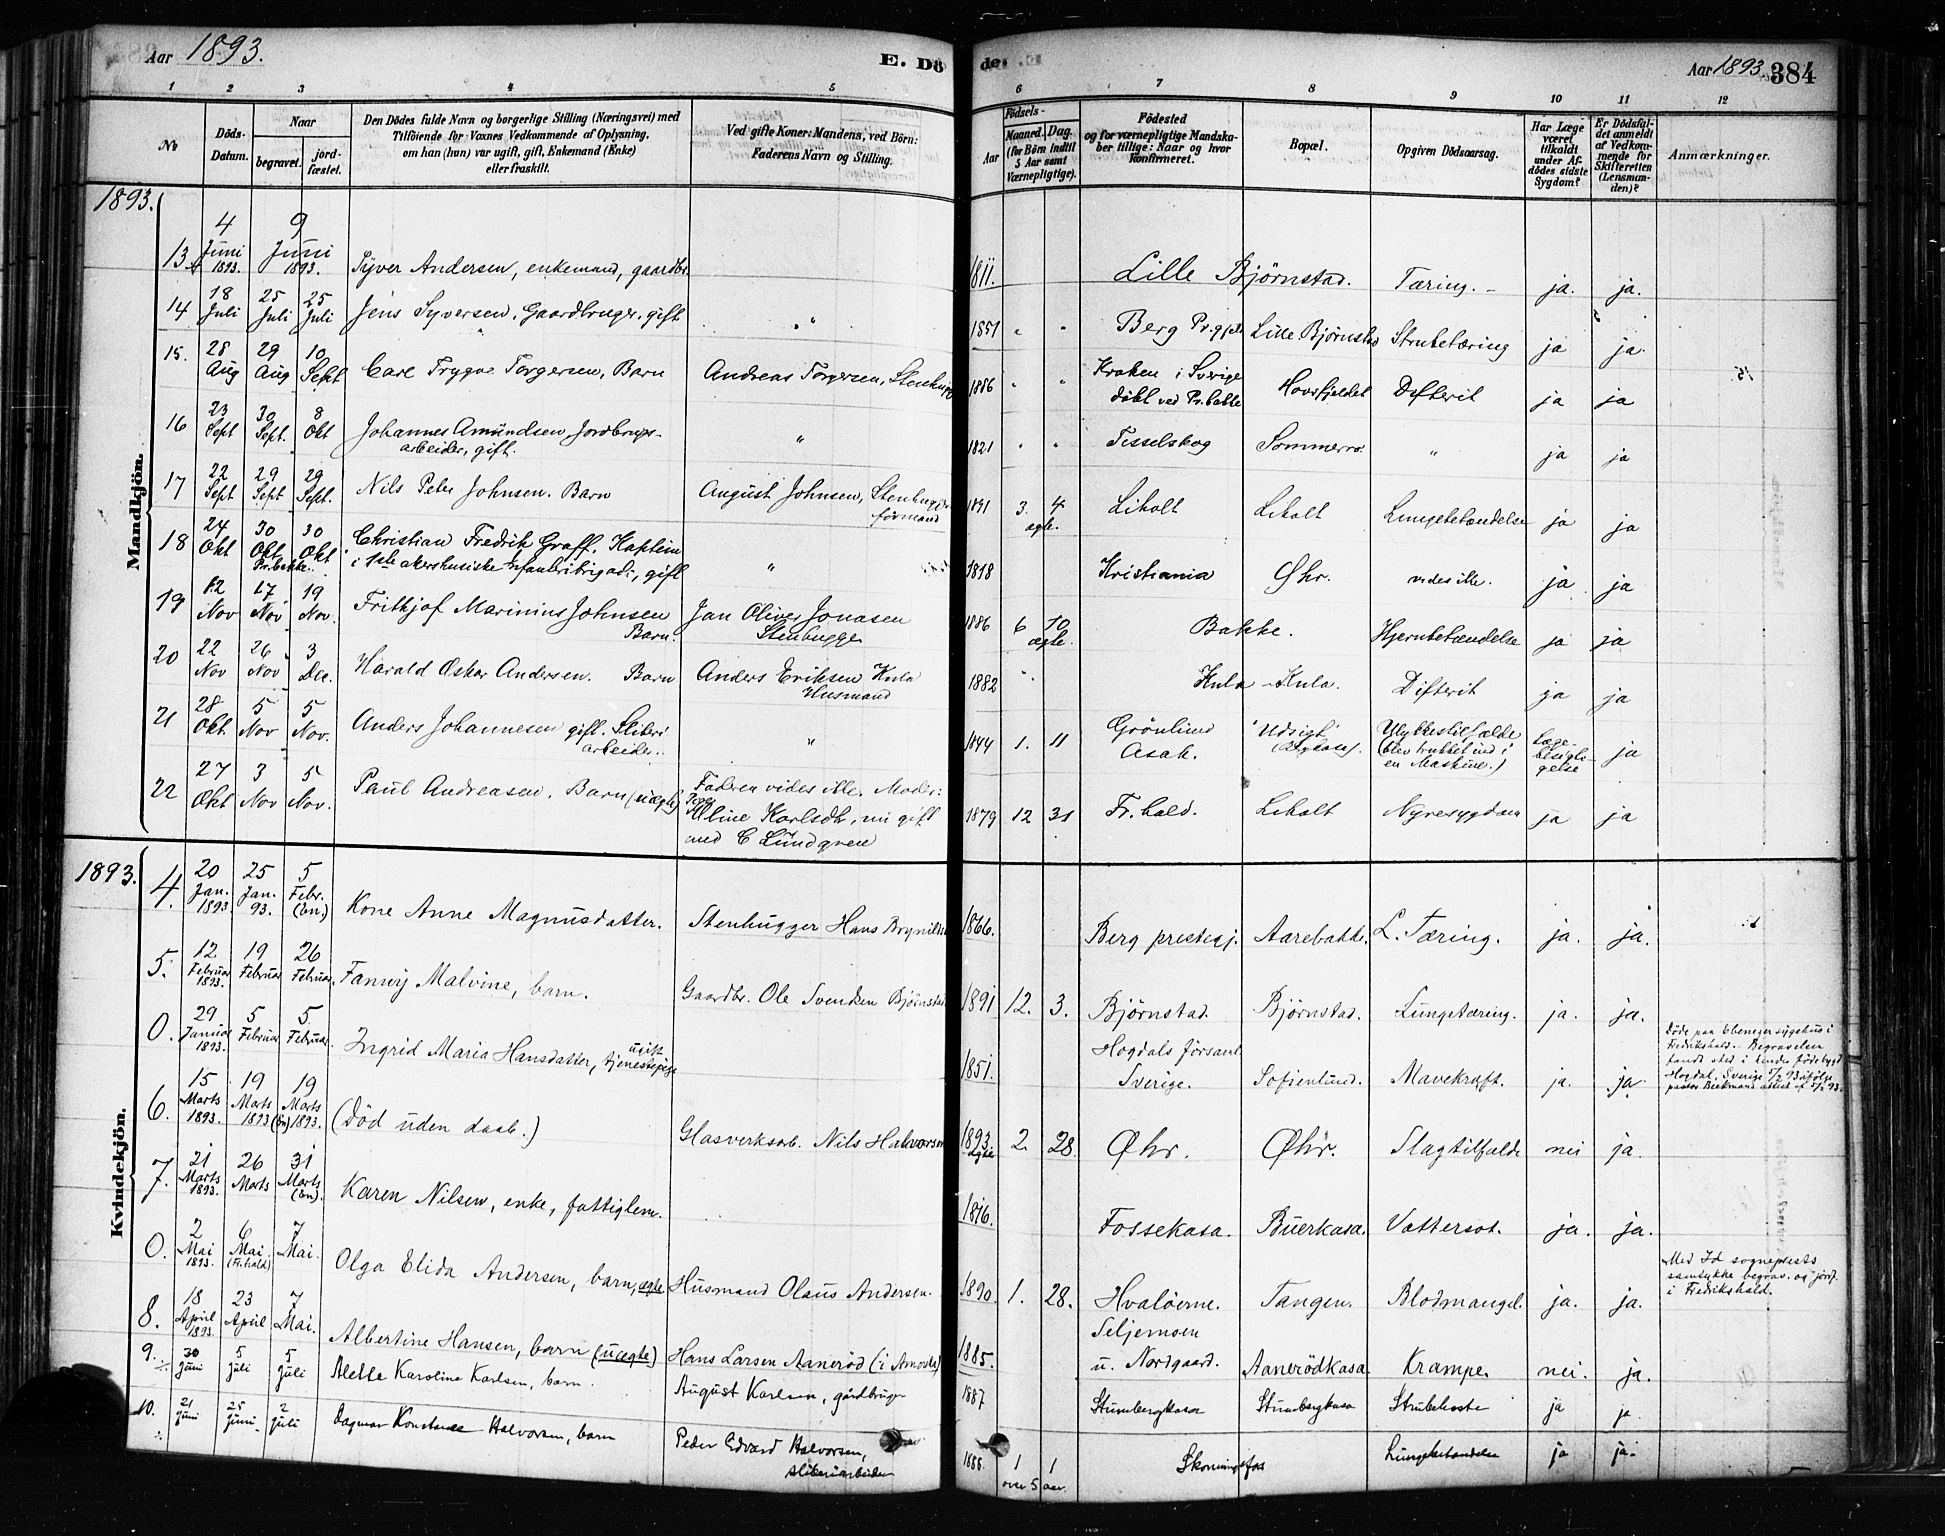 Aar 1893. E. Dö
de. Aar 1893. 384
1 2 3 4 5
6 7 8 9 10 11 12
No
Döds-Datum.
Naar
begravet.
jord-fæstet.
Den Dödes fulde Navn og borgerlige Stilling (Næringsvei) med
Tilföiende for Voxnes Vedkommende af Oplysning,
om han (hun) var ugift, gift, Enkemand (Enke)
eller fraskilt.
Ved gifte Koner: Mandens, ved Börn:
Faderens Navn og Stilling.
Födsels-
Aar
Maaned. Dag.
(for Börn indtil
5 Aar samt
Værnepligtige).
Födested
og for værnepligtige Mandska-
ber tillige: Naar og hvor
Konfirmeret.
Bopæl.
Opgiven Dödsaarsag.
Har Læge
været
tilkaldt
under Af-
dödes sidste
Sygdom?
Er Dödsfal-
det anmeldt
af Vedkom-
mende for
Skifteretten
(Lensman-
den)?
Anmærkninger.
1893.
Mandkjön.
13 4 Juni 1893. 9 Juni 1893. Syver Andersen, enkemand, gaardbr. 1811. Lille Björnstad. Tæring. - ja. ja.
14 18 Juli 25 Juli 25 Juli Jens Syversen, Gaardbruger, gift " 1851 " " Berg Pr.gjeld Lille Björnstad Strubetæring ja ja.
15. 28 Aug 29 Aug 10 Sept Carl Trygve Torgersen, Barn Andreas Torgersen, Stenhugger 1886 " " Kraken i Sverige
döbt ved Pr.bakke Hovsfjeldet Difterit ja ja
16 23 Sept 30 Sept. 8 Okt Johannes Amundsen Jordbrugs-
arbeider, gift. " 1821 " " Tisselskog Sommerro. " ja ja
17 22 Sept 29 Sept 29 Sept. Nils Peter Johnsen. Barn August Johnsen, Stenhugger
formand 1891 3. 4 ægte. Liholt Liholt Lungebetændelse ja ja
18 24 Okt 30 Okt Pr.bakke. 30 Okt Christian Fredrik Graff. Kaptein
i 1ste akershusiske Infanteribrigade, gift " 1818 Kristiania Øhr. vides ikke. ja ja
19 12 Nov 17 Nov 19 Nov. Frithjof Marinius Johnsen
Barn. Jan Oliver Jonasen
Stenhugger 1886 6 10 ægte. Bakke. Hjernbetændelse ja ja
20 22 Nov 26 Nov 3 Dec. Harald Oskar Andersen. Barn Anders Eriksen Kula
Husmand 1882 " Kula - Kula. Difterit ja ja
21 28 Okt. 5 Nov 5 Nov. Anders Johannesen gift. Sliberi
arbeider. " 1844 1. 11 Grönlund
Asak. "Udsigt" Ulykkestilfælde
(blev trukket ind i
en Maskine.) Læge-
besigti-
gelse ja
22 27 Okt 3 Nov 5 Nov. Paul Andreasen. Barn (uægte) Faderen vides ikke. Moder:
Oline Karlsdt., nu gift
med C Lundgren 1879 12 31 Fr.hald. Liholt Nyresygdom ja ja
1893.
Kvindekjön.
4. 20 Jan. 1893. 25 Jan. 93. 5 Febr. (En) Kone Anne Magnusdatter. Stenhugger Hans Brynildsen 1866. Berg prestegj. Aarebakke. L. Tæring. ja. ja.
5. 12 Februar 1893. 19 Februar 26 Februar. Fanny Malvine, barn. Gaardbr. Ole Svendsen Björnstad 1891 12. 3. Björnstad. Björnstad. Lungetæring. ja. ja.
0. 29 Januar 1893. 5 Februar 5 Februar. Ingrid Maria Hansdatter, ugift tjenestepige 1851. Hogdals forsaml.
Sverige. Sofienlund. Mavekræft. ja. ja. Döde paa Ebenezer sygehus i
Fredrikshald. - Begravelsen
fandt sted i hendes födebygd
Hogdal, Sverige 5/2 93 ifölge
pastor Beckmans attest af 5/2 93.
6. 15 Marts 1893. 19 Marts 1893 19 Marts (En) 1893. (Död uden daab.) Glasverksarb. Nils Halvorsen 1893. ægte 2. 28. Øhr. Øhr. Slagtilfælde nei ja.
7. 21 Marts 1893. 26 Marts 31 Marts (En). Karen Nilsen, enke, fattiglem. 1816. Fossekasa. Buerkasa. Vattersot. ja. ja.
0. 2 Mai 1893. 6 Mai. (Fr.hald) 7 Mai. Olga Elida Andersen, barn, ægte Husmand Olaus Andersen. 1890. 1. 28. Hvalöerne. Tangen. Blodmangel. ja. ja. Med Id sogneprests
samtykke begrav. og jordf.
i Fredrikshald.
8. 18 April 1893. 23 April 7 Mai. Albertine Hansen, barn (uægte) Hans Larsen Aanerød (i Amerika) 1885. Seljemoen
u. Nordgaard. Aanerödkasa. Krampe. nei. ja.
9. 30 Juni 5 Juli 5 Juli Alette Karoline Karlsen, barn. August Karlsen, gårdbruger 1887 Stumbergkasa Stumbergkasa Strubehoste ja ja.
10. 21 Juni 25 Juni. 2 Juli Dagmar Konstanse Halvorsen, barn Peder Edvard Halvorsen,
sliberiarbeider 1888. 1 1
over 5 aar. Skonningsfos Lungebetændelse ja ja.